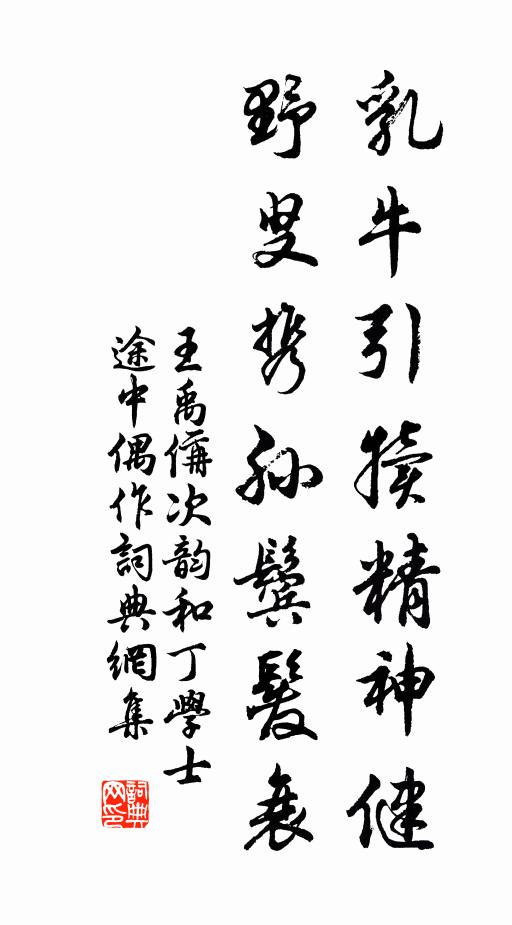 乳牛引犢精神健
野叟携孙鬓髮衰
王禹偁次韵和丁學士
途中偶作詞典網集
詞典
网印